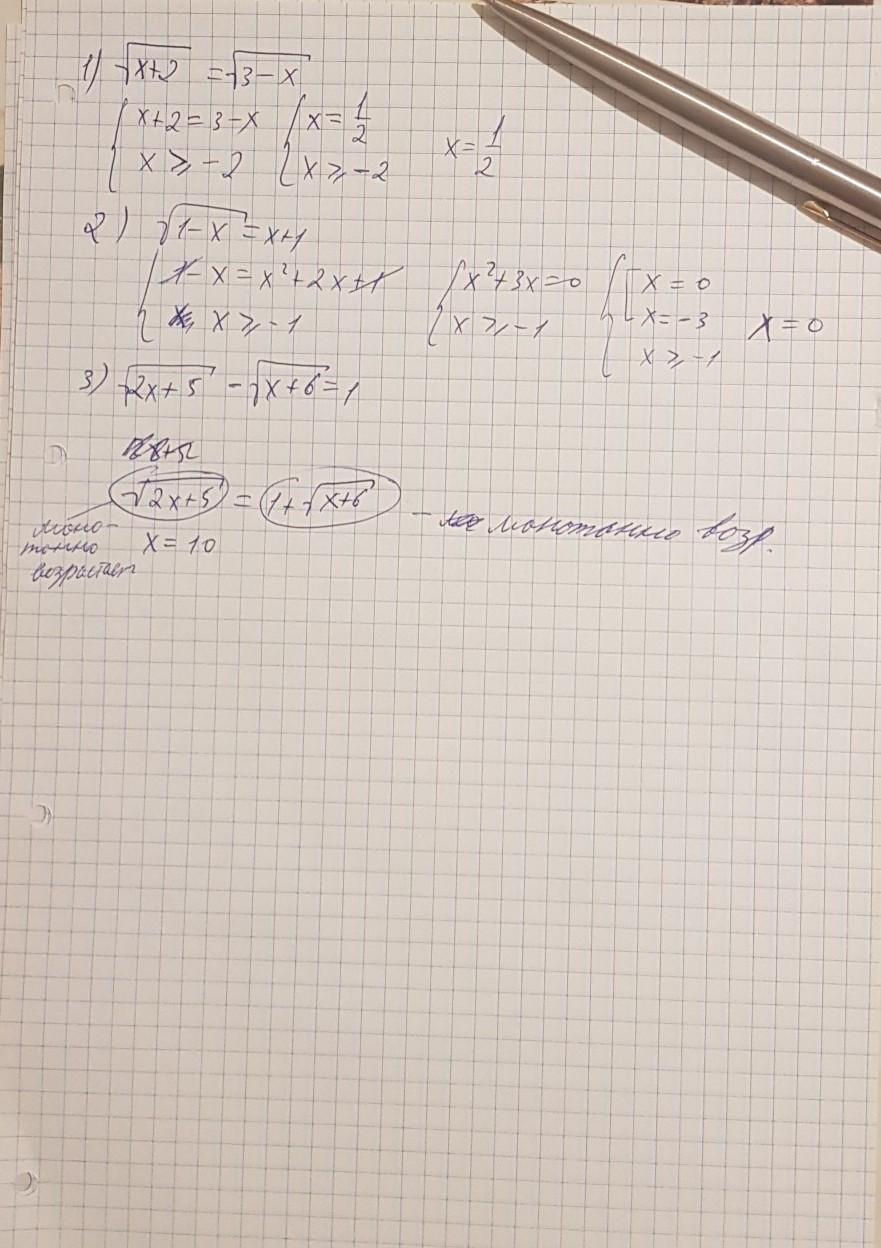 1) √x+2 = √3-x
{ x+2=3-x { x=1/2
{ x ⩾ -2 { x ⩾ -2 x=1/2
2) √1-x = x+1
{ 1-x = x²+2x+1 { x²+3x=0 { [ x = 0
{ x ⩾ -1 { x ⩾ -1 [ x=-3 x=0
x ⩾ -1
3) √2x+5 - √x+6 = 1
√2x+5 = 1+√x+6 - монотонно возр.
моно-
тонно x=10
возрастает